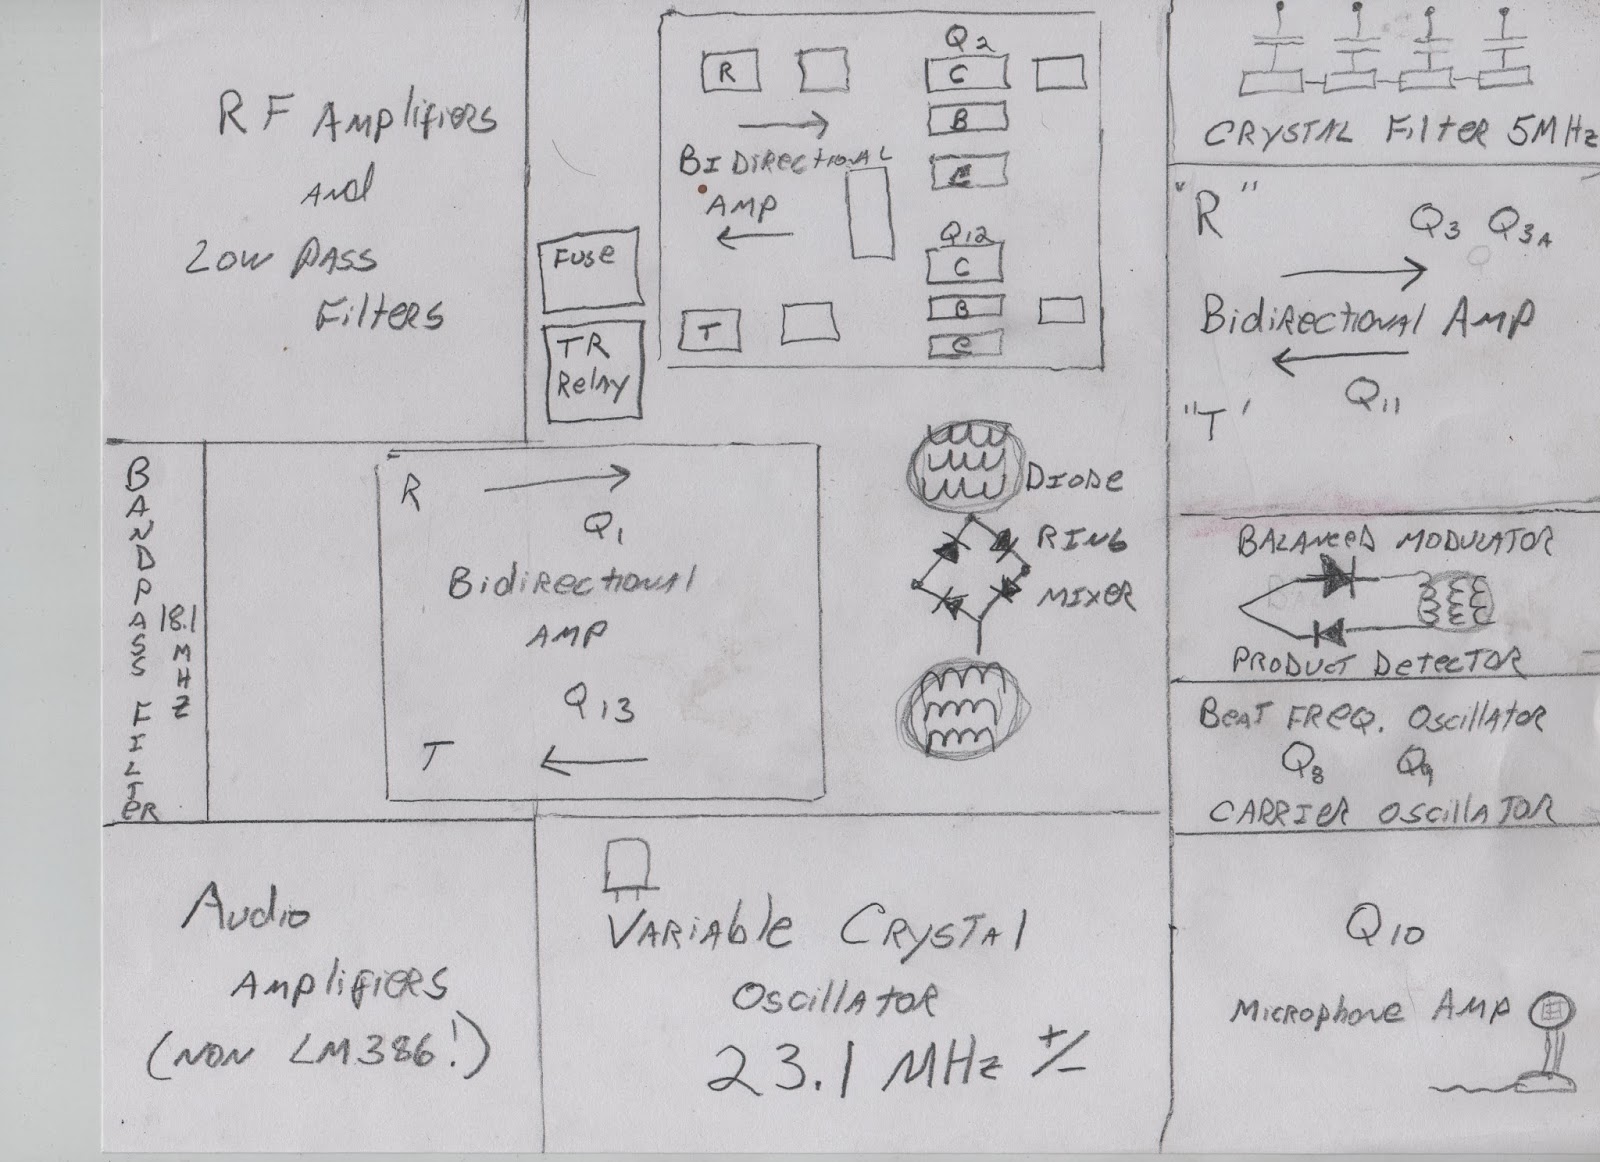 RF Amplifiers
and
Low Pass
Filters
Fuse
TR
Relay
Q2
R
C
B
E
Bidirectional
Amp
Q12
C
B
E
T
Crystal Filter 5MHz
"R"
Q3 Q3A
Bidirectional Amp
Q11
"T'
Bandpass Filter
18.1 MHz
R
Q1
Bidirectional
Amp
Q13
T
Diode
Ring
Mixer
Balanced Modulator
Product Detector
Beat Freq. Oscillator
Q8 Q9
Carrier Oscillator
Audio
Amplifiers
(non LM386!)
Variable Crystal
Oscillator
23.1 MHz +/-
Q10
Microphone Amp